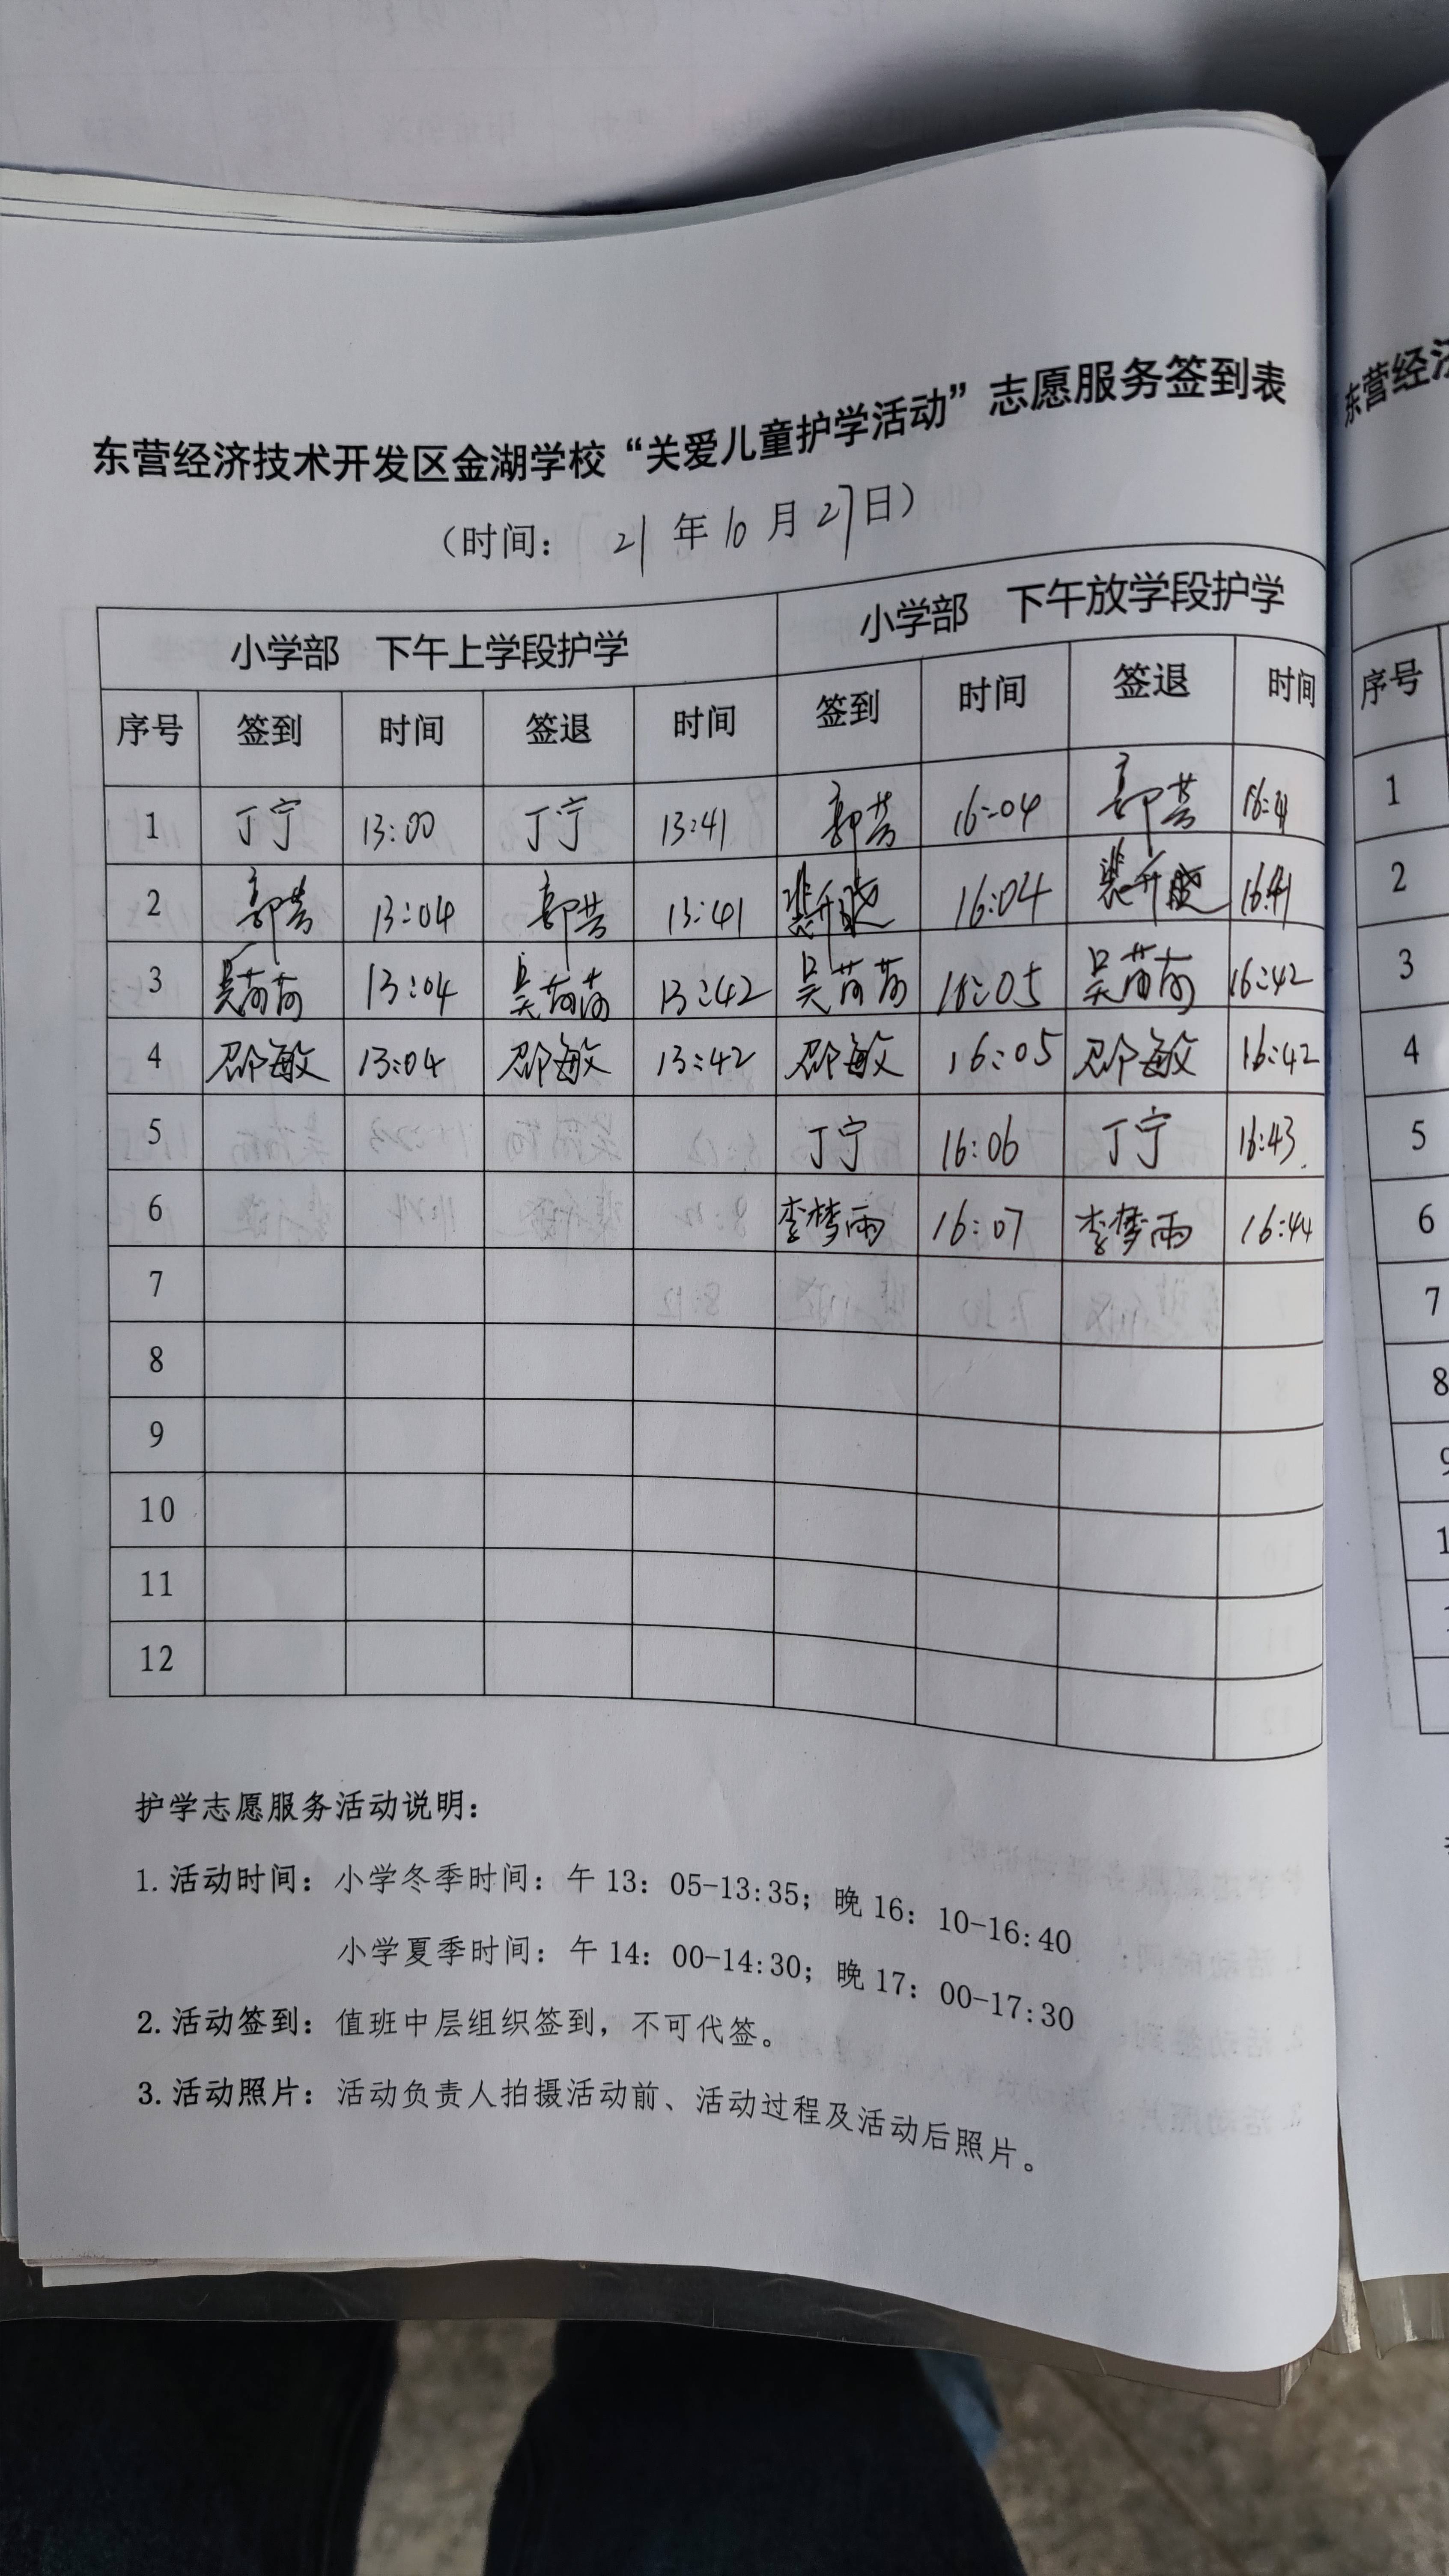 东营经济技术开发区金湖学校“关爱儿童护学活动”志愿服务签到表
（时间： 21 年 10 月 27 日）
小学部 下午上学段护学 小学部 下午放学段护学
序号 签到 时间 签退 时间 签到 时间 签退 时间
1 丁宁 13:00 丁宁 13:41 郭芸 16:04 郭芸 16:41
2 郭芸 13:04 郭芸 13:41 16:04 16:41
3 吴苘苘 13:04 吴苘苘 13:42 吴苘苘 16:05 吴苘苘 16:42
4 邵敏 13:04 邵敏 13:42 邵敏 16:05 邵敏 16:42
5 丁宁 16:06 丁宁 16:43
6 李梦雨 16:07 李梦雨 16:44
7
8
9
10
11
12
护学志愿服务活动说明：
1.活动时间：小学冬季时间：午 13：05-13:35；晚 16：10-16:40
小学夏季时间：午 14：00-14:30；晚 17：00-17:30
2.活动签到：值班中层组织签到，不可代签。
3.活动照片：活动负责人拍摄活动前、活动过程及活动后照片。
东营经济
序号
1
2
3
4
5
6
7
8